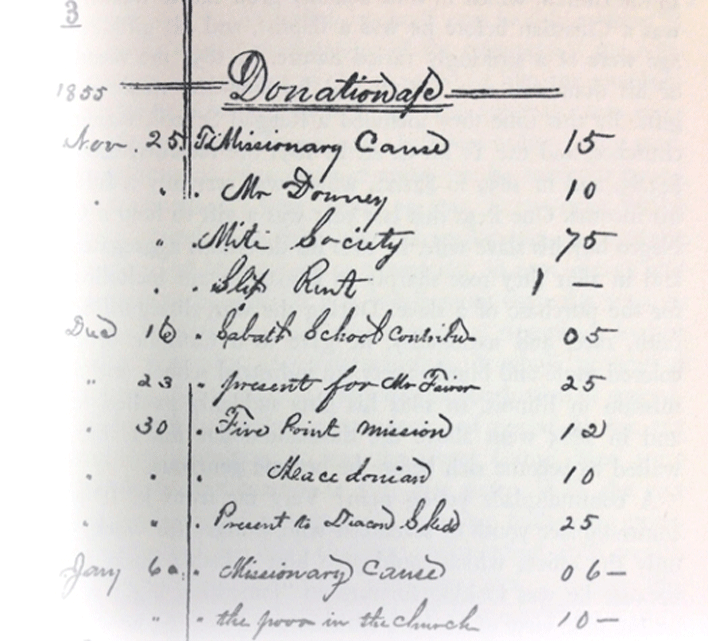 3
1855 Donations
Nov. 25 To Missionary Cause 15
" . Mr Downey 10
" . Mite Society 75
. . Slip Rent 1 —
Dec 16 Sabath School Contribu 05
" 23 " present for Mr 25
" 30 " Five Point mission 12
" " . Macedonian 10
" " . Present to Deacon 25
Jany 6 . Missionary Cause 06 —
" " the poor in the church 10 —